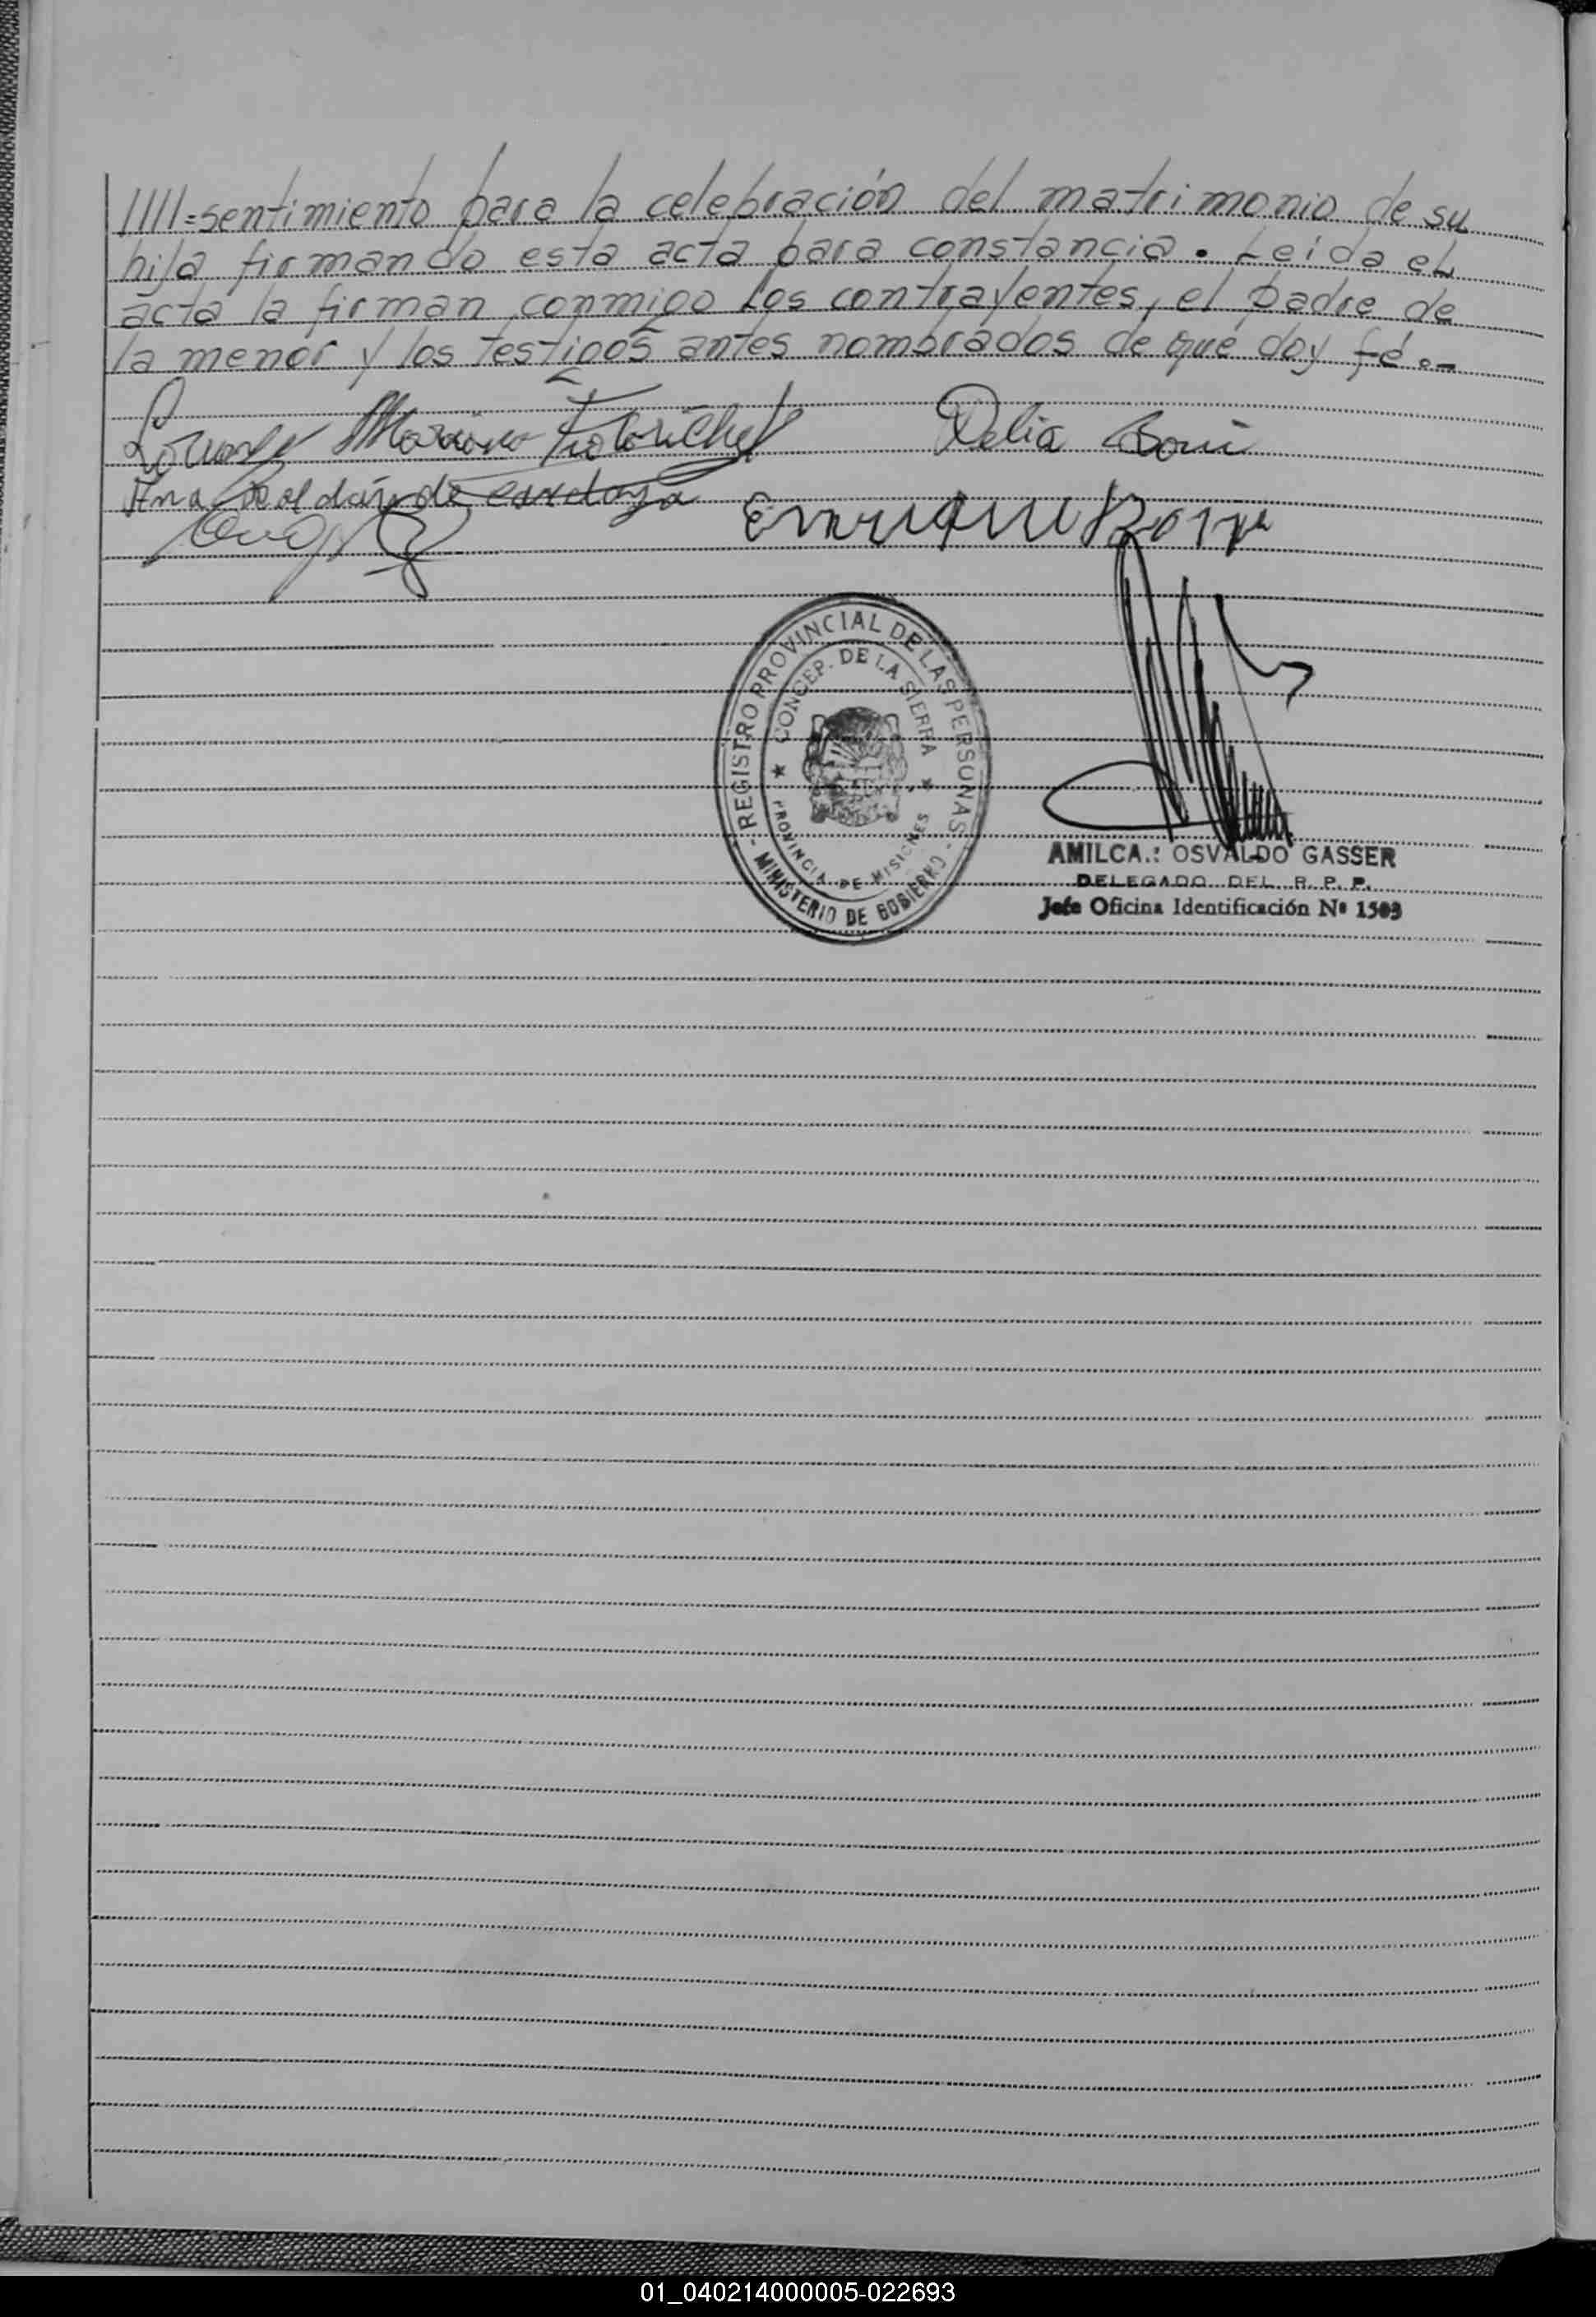 ////=sentimiento para la celebración del matrimonio de su
hija firmando esta acta para constancia. Leída el
acta la firman conmigo los contrayentes, el padre de
la menor y los testigos antes nombrados de que doy fé.-
Delia
Ana Roldán de Cardozo
Enrique
REGISTRO PROVINCIAL DE LAS PERSONAS
- MINISTERIO DE GOBIERNO -
CONCEP. DE LA SIERRA
PROVINCIA DE MISIONES
AMILCA.: OSVALDO GASSER
DELEGADO DEL R. P. P.
Jefe Oficina Identificación Nº 1503
01_040214000005-022693